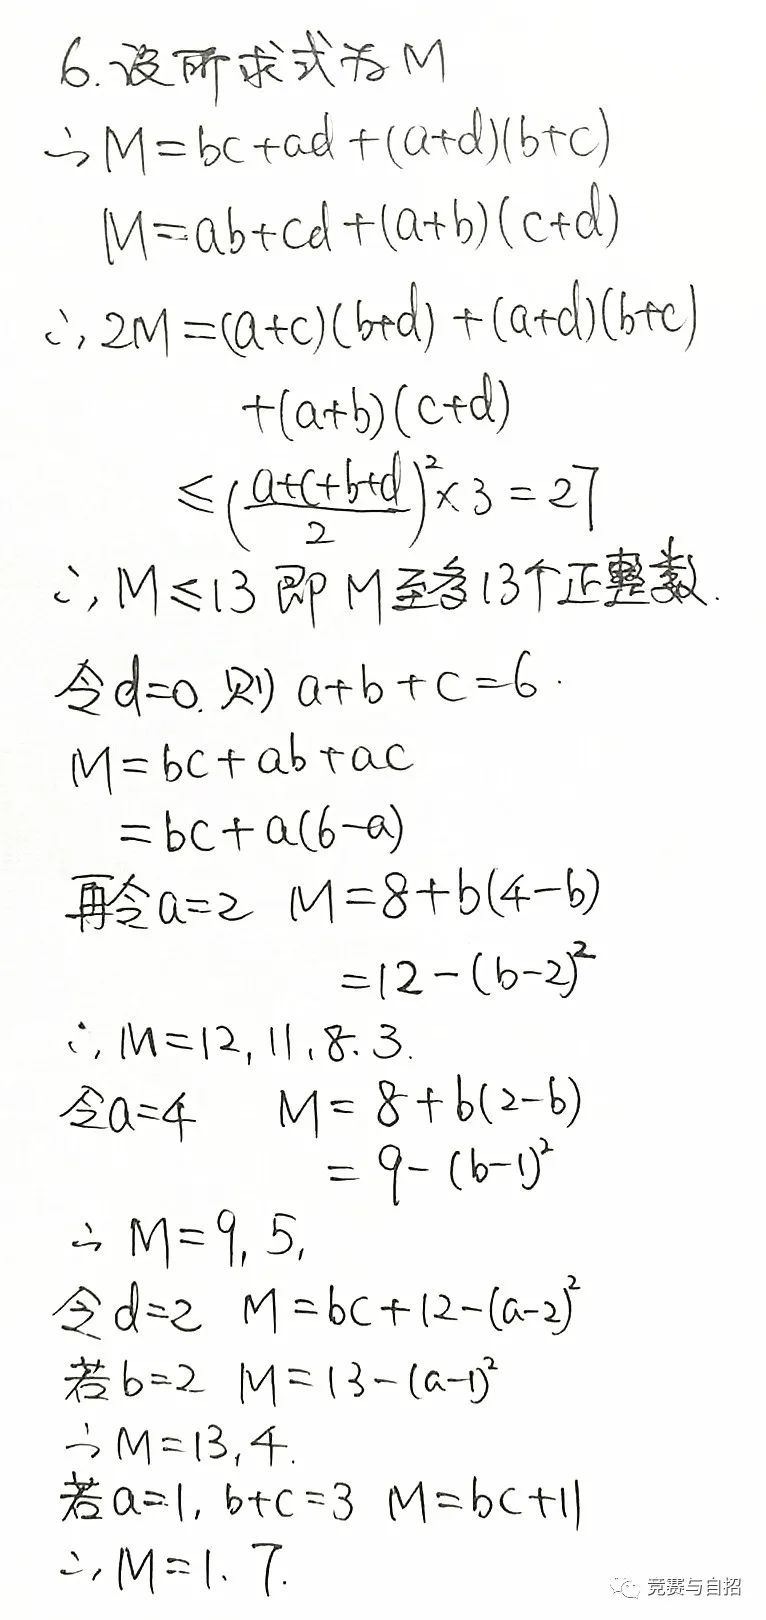 6. 设所求式为M
∴ M=bc+ad+(a+d)(b+c)
M=ab+cd+(a+b)(c+d)
∴ 2M=(a+c)(b+d)+(a+d)(b+c)
+(a+b)(c+d)
≤((a+c+b+d)/2)²×3=27
∴ M≤13 即 M至多13个正整数.
令d=0. 则 a+b+c=6.
M=bc+ab+ac
=bc+a(6-a)
再令a=2 M=8+b(4-b)
=12-(b-2)²
∴ M=12, 11, 8. 3.
令a=4 M=8+b(2-b)
=9-(b-1)²
∴ M=9, 5,
令d=2 M=bc+12-(a-2)²
若b=2 M=13-(a-1)²
∴ M=13, 4.
若a=1, b+c=3 M=bc+11
∴ M=1. 7.
竞赛与自招